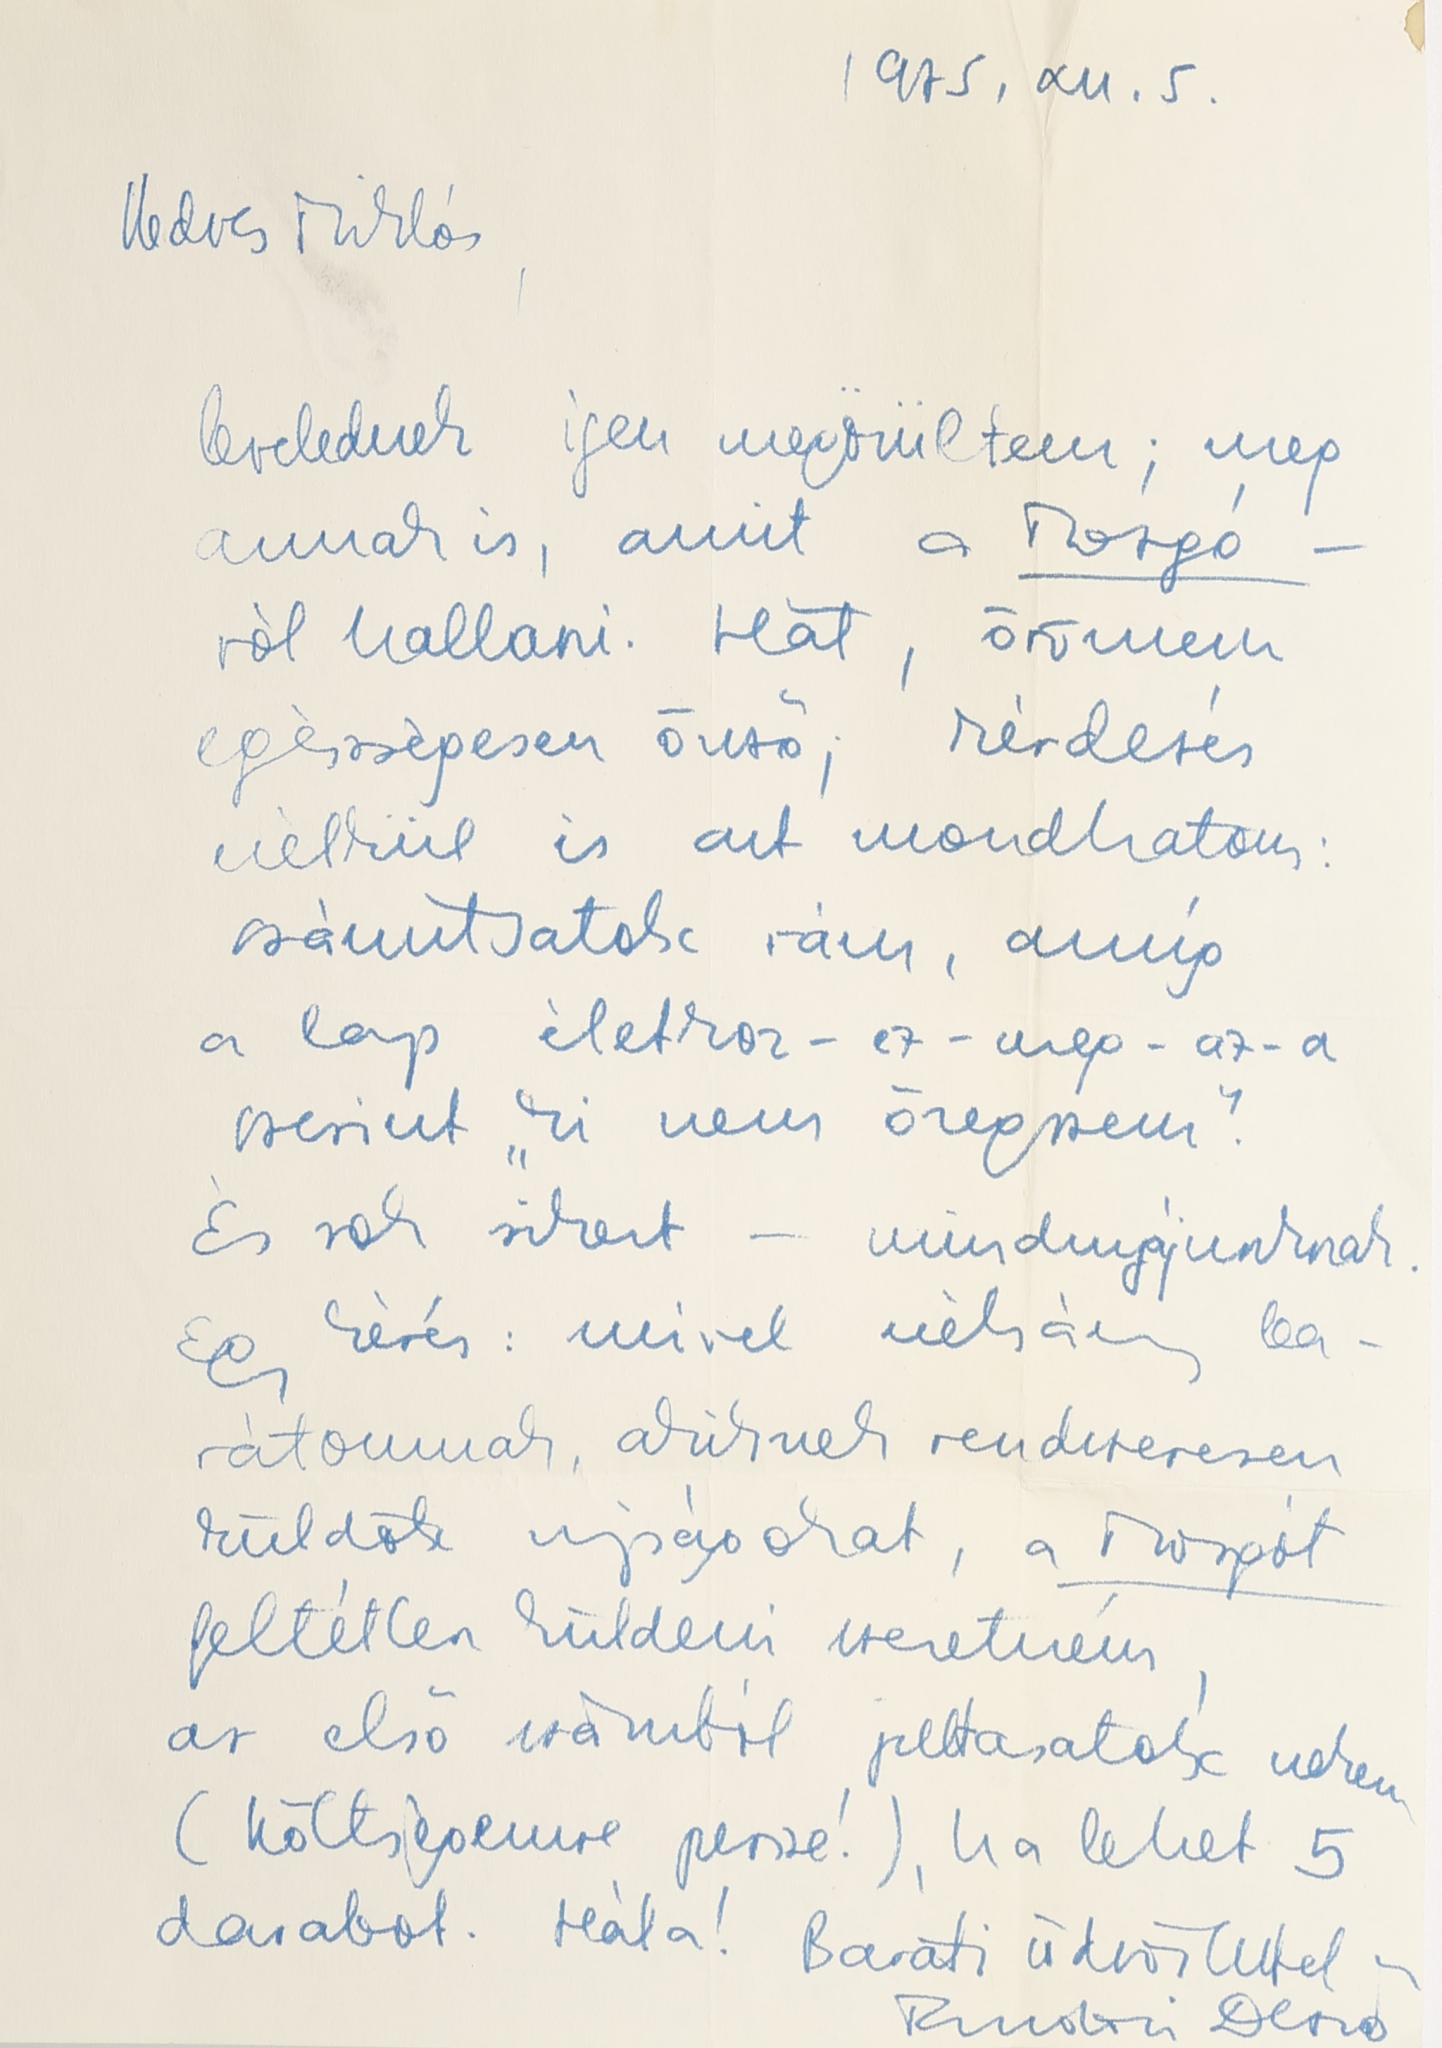 1975. XII. 5.
Kedves Miklós,
levelednek igen megörültem; meg
annak is, amit a Mozgó-
ról hallani. Hát, örömem
egészségesen önző; kérdezés
nélkül is azt mondhatom:
számítsatok rám, amíg
a lap életkor-ez-meg-az-a
szerint „ki nem öregszem".
És sok sikert – mindnyájunknak.
Egy kérés: mivel néhány ba-
rátomnak, akiknek rendszeresen
küldök ujságokat, a Mozgót
feltétlen küldeni szeretném,
az első számból juttassatok nekem
(költségemre persze!), ha lehet 5
darabot. Hála! Baráti üdvözlettel
Dezső